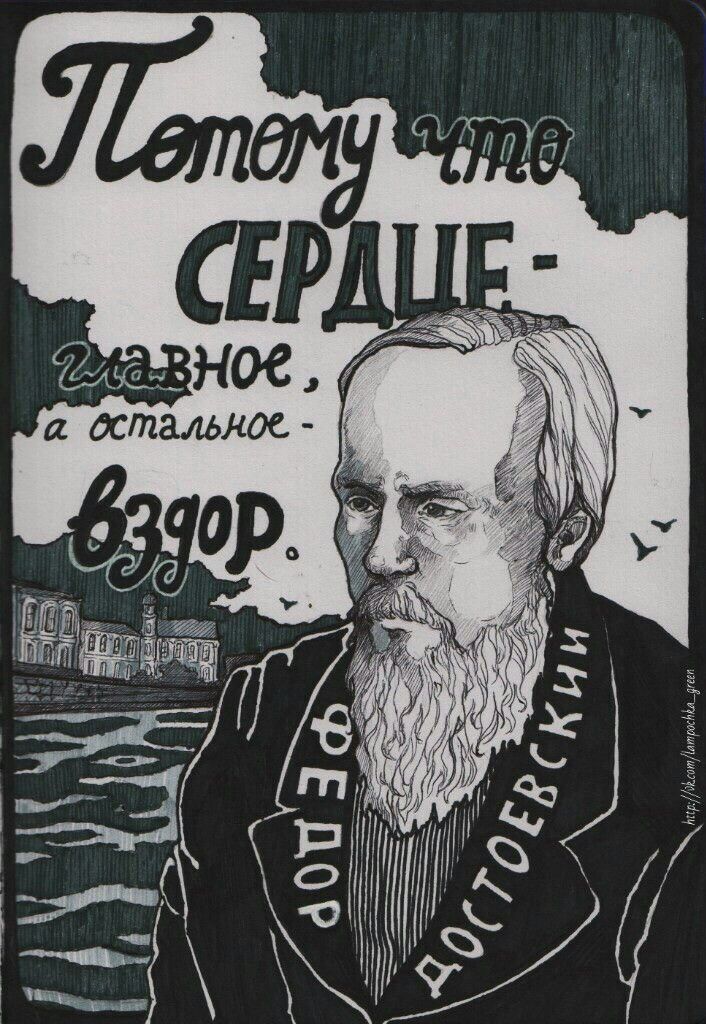 Потому что
СЕРДЦЕ -
главное,
а остальное -
вздор.
ФЕДОР
ДОСТОЕВСКИЙ
http://vk.com/lampochka_green